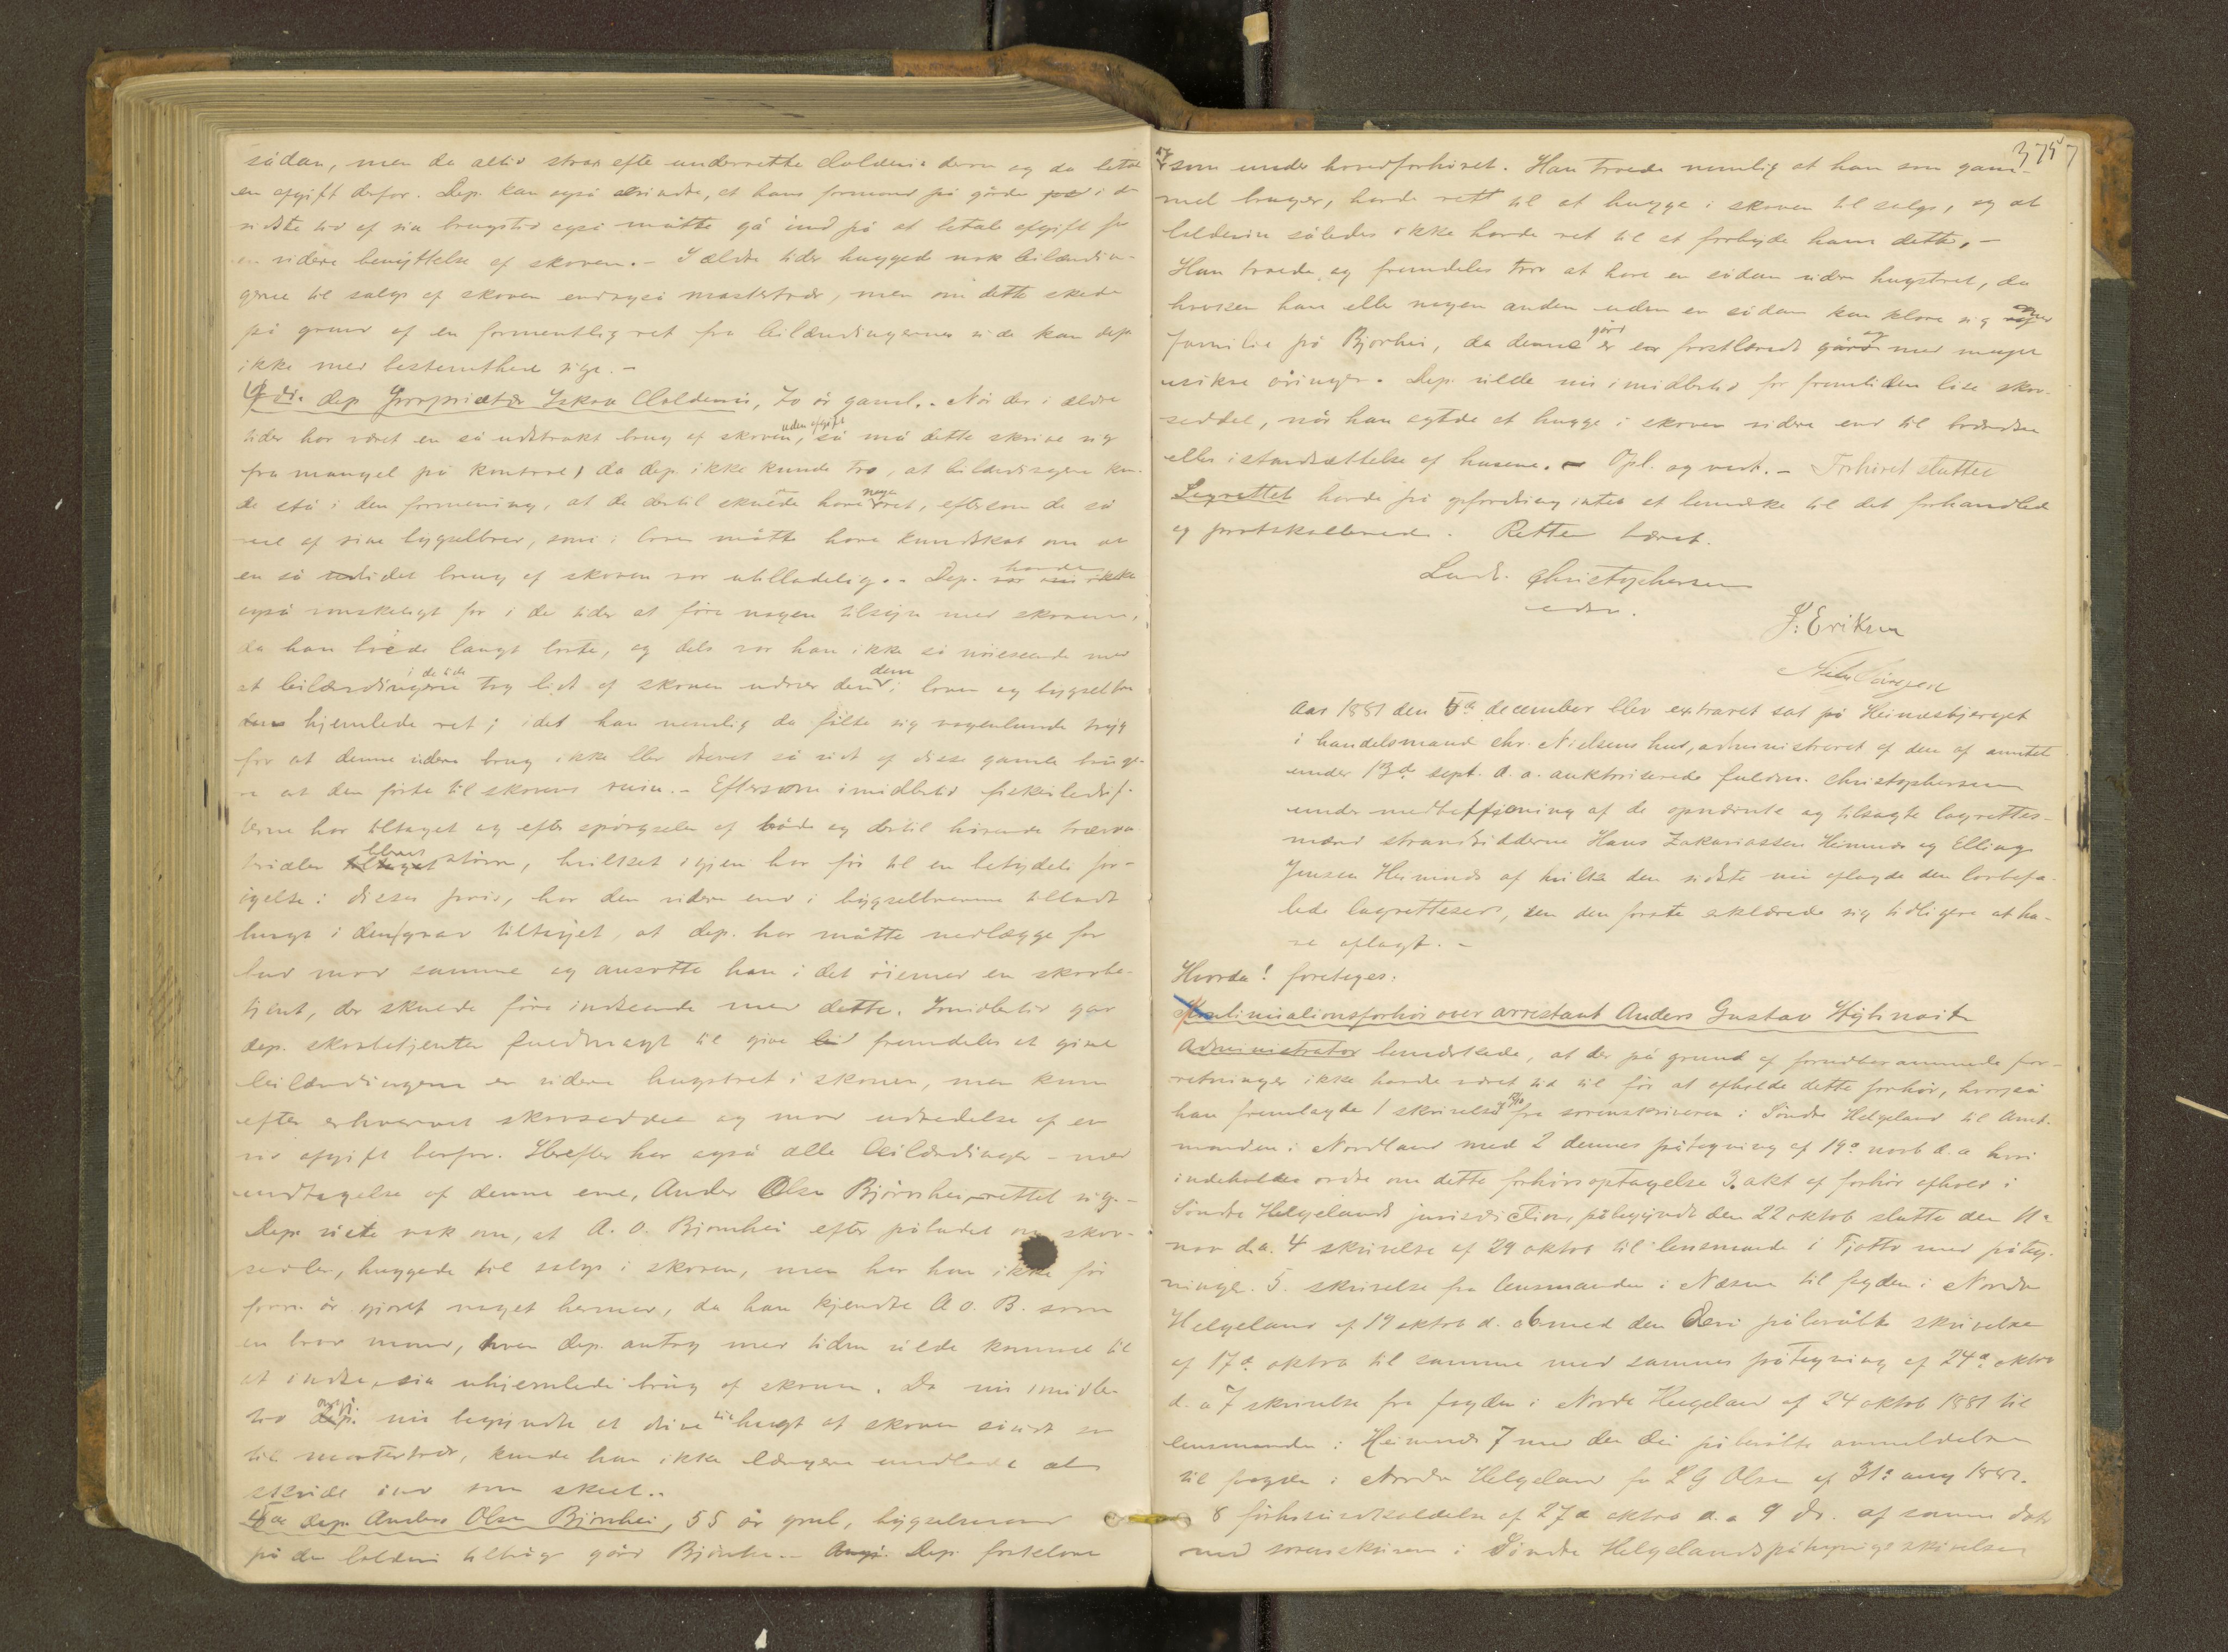 sådan, men da altid strax efter underrette Coldevin derom og da betale
en afgift derfor. Dep. kan også erindre, at hans formand på gården i de
sidste tid af sin brugstid også måtte gå ind på at betale afgift for
en videre benyttelse af skoven. - I ældre tider huggede nok leilændin-
gerne til salgs af skoven endogså mastertrær, men om dette skede
på grund af en formentlig ret fra leilændingernes side kan dep.
ikke med bestemthed sige. -
4de dep Proprietær Isach Coldevin, 70 år gaml. - Når der i ældre
tider har været en så udstrakt brug af skoven, uden afgift så må dette skrive sig
fra mangel på kontrol, da dep. ikke kunde tro, at leilændingene kun-
de stå i den formening, at de dertil skulde have nogen ret, eftersom de så
vel af sine bygselbrev, som i loven måtte have kundskab om at
en så vidt brug af skoven var utilladelig. - Dep. havde ikke
også vanskeligt for i de tider at føre nogen tilsyn med skoven,
da han boede langt borte, og dels var han ikke så nøieseende med
at leilændingerne i de tider tog lidt af skoven udover den dem i loven og bygselbre
hjemlede ret; idet han nemlig da følte sig nogenlunde tryg
for at denne videre brug ikke blev drevet så vidt af disse gamle bruge-
re at den førte til skovens ruin. - Eftersom imidlertid fiskeribedrif-
terne har tiltaget og efterspørgselen af både og dertil hørende træma-
terialer blevet større, hvilket igjen har ført til en betydelig for-
øgelse i disses pris, har den videre end i bygselbrevene tilladt
hugst i den grad tiltaget, at dep. har måttet nedlægge for-
bud mod samme og ansatte han i det øiemed en skovbe-
tjent, der skulde føre indseende med dette. Imidlertid gav
dep. skovbetjenten fuldmagt til fremdeles at give
leilændingerne en videre hugstret i skoven, men kun
efter erhvervet skovseddel og mod udredelse af en
vis afgift herfor. Herefter har også alle leilændinger - med
undtagelse af denne ene, Anders Olsen Bjørnhei, rettet sig. -
Dep. viste nok om, at A. O. Bjørnhei efter påbudet om skov-
sedler, huggede til salgs i skoven, men har han ikke før
forr. år gjort noget hermed, da han kjendte A. O. B. som
en brav mand, hvem dep. antog med tiden vilde komme til
at indse sin uhjemlede brug af skoven. Da nu imidler-
tid angj. nu begyndte at drive hugst af skoven såvidt som
til mastertrær, kunde han ikke længere undlade at
skride ind som skeet. -
5te dep. Anders Olsen Bjørnhei, 55 år gml, bygselmand
på den Coldevin tilhørige gård Bjørnhei. - Dep. forklare
375
som under hovedforhøret. Han troede nemlig at han som gam-
mel bruger, havde rett til at hugge i skoven til salgs, og at
Coldevin således ikke havde ret til at forbyde ham dette. -
Han troede og fremdeles tror at have en sådan videre hugstret, da
hverken han eller nogen anden uden en sådan kan klare sig med
familie på Bjørnhei, da denne gård er en frostlændt og med meget
usikre åringer. Dep. vilde nu imidlertid for fremtiden løse skov-
seddel, når han agtede at hugge i skoven videre end til brændsel
eller istandsættelse af husene. - Opl. og vedt. - Forhøret sluttet
Lagrettet havde på opfordring intet at bemærke til det forhandlede
og protokollerede. Retten hævet.
Ludv. Christophersen
edsv.
J. Eriksen
Nils Jörgen
Aar 1881 den 5te december blev extraret sat på Heimæsbjerget
i handelsmand Chr. Nielsens hus, administreret af den af amtet
under 13de sept. d. a. auktoriserede fuldm. Christophersen
under medbetjening af de opnævnte og tilsagte lagrettes-
mænd strandsidderne Hans Zakariassen Heimnes og Elling
Jensen Heimnes af hvilke den sidste nu aflagde den lovbefa-
lede lagretteseed, den den første erklærede sig tidligere at ha-
ve aflagt. -
Hvorda! foretoges:
Kontinuationsforhör over arrestant Anders Gustav
Administrator bemærkede, at der på grund af forudberammede for-
retninger ikke havde været tid til før at afholde dette forhør, hvorpå
han fremlagde 1 skrivelse fra sorenskriveren i Söndre Helgeland til Amt-
manden i Nordland med 2 dennes påtegning af 19de novb d. a. hvori
indeholdes ordre om dette forhørs optagelse 3. akt af forhör afholdt i
Söndre Helgelands jurisdiction, påbegyndt den 22 oktob sluttet den 11te
nov d. a. 4 skrivelse af 29 oktob til lensmanden i Tjøtta med påteg-
ninger. 5. skrivelse fra lensmanden i Næsne til fogden i Nordre
Helgeland af 19 oktob d. a. 6 med den deri påberåbte skrivelse
af 17de oktob til samme med sammes påtegning af 24de oktob
d. a. 7 skrivelse fra fogden i Nordre Helgeland af 24 oktob 1881 til
lensmanden i Heimnes 7 med den deri påberåbte anmeldelse
til fogden i Nordre Helgeland fra L G Olsen af 31te aug 1881.
8 forhørsudskoldelse af 27de oktob d. a. 9 do. af samme dato
med sorenskriveren i Söndre Helgelands påtegnings skrivelse